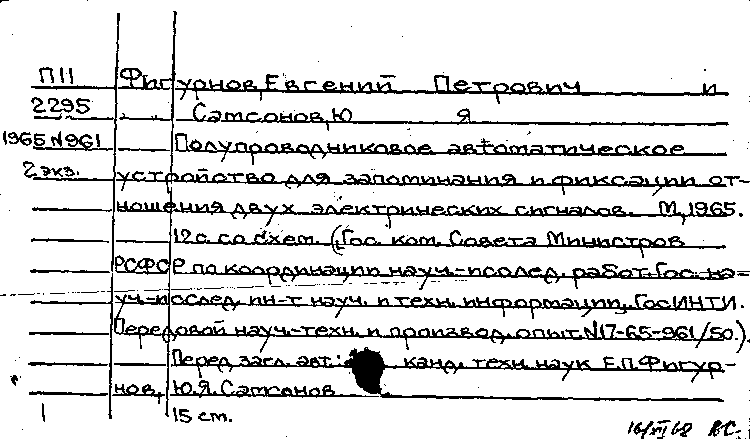 П11 Фигурнов, Евгений Петрович и
2295 Самсонов, Ю Я
1965 N961 Полупроводниковое автоматическое
2 экз. устройство для запоминания и фиксации от-
ношения двух электрических сигналов. М, 1965.
12 с. со схем. (Гос. ком. Совета Министров
РСФСР по координации науч.-исслед. работ. Гос. на-
уч.-исслед. ин-т науч. и техн. информации, ГосИНТИ.
Передовой науч.-техн. и производ. опыт. N17-65-961/50.)
Перед загл. авт.: канд. техн. наук Е.П. Фигур-
нов, Ю.Я. Самсонов
1 15 cm.
16/XI 68 ВС.